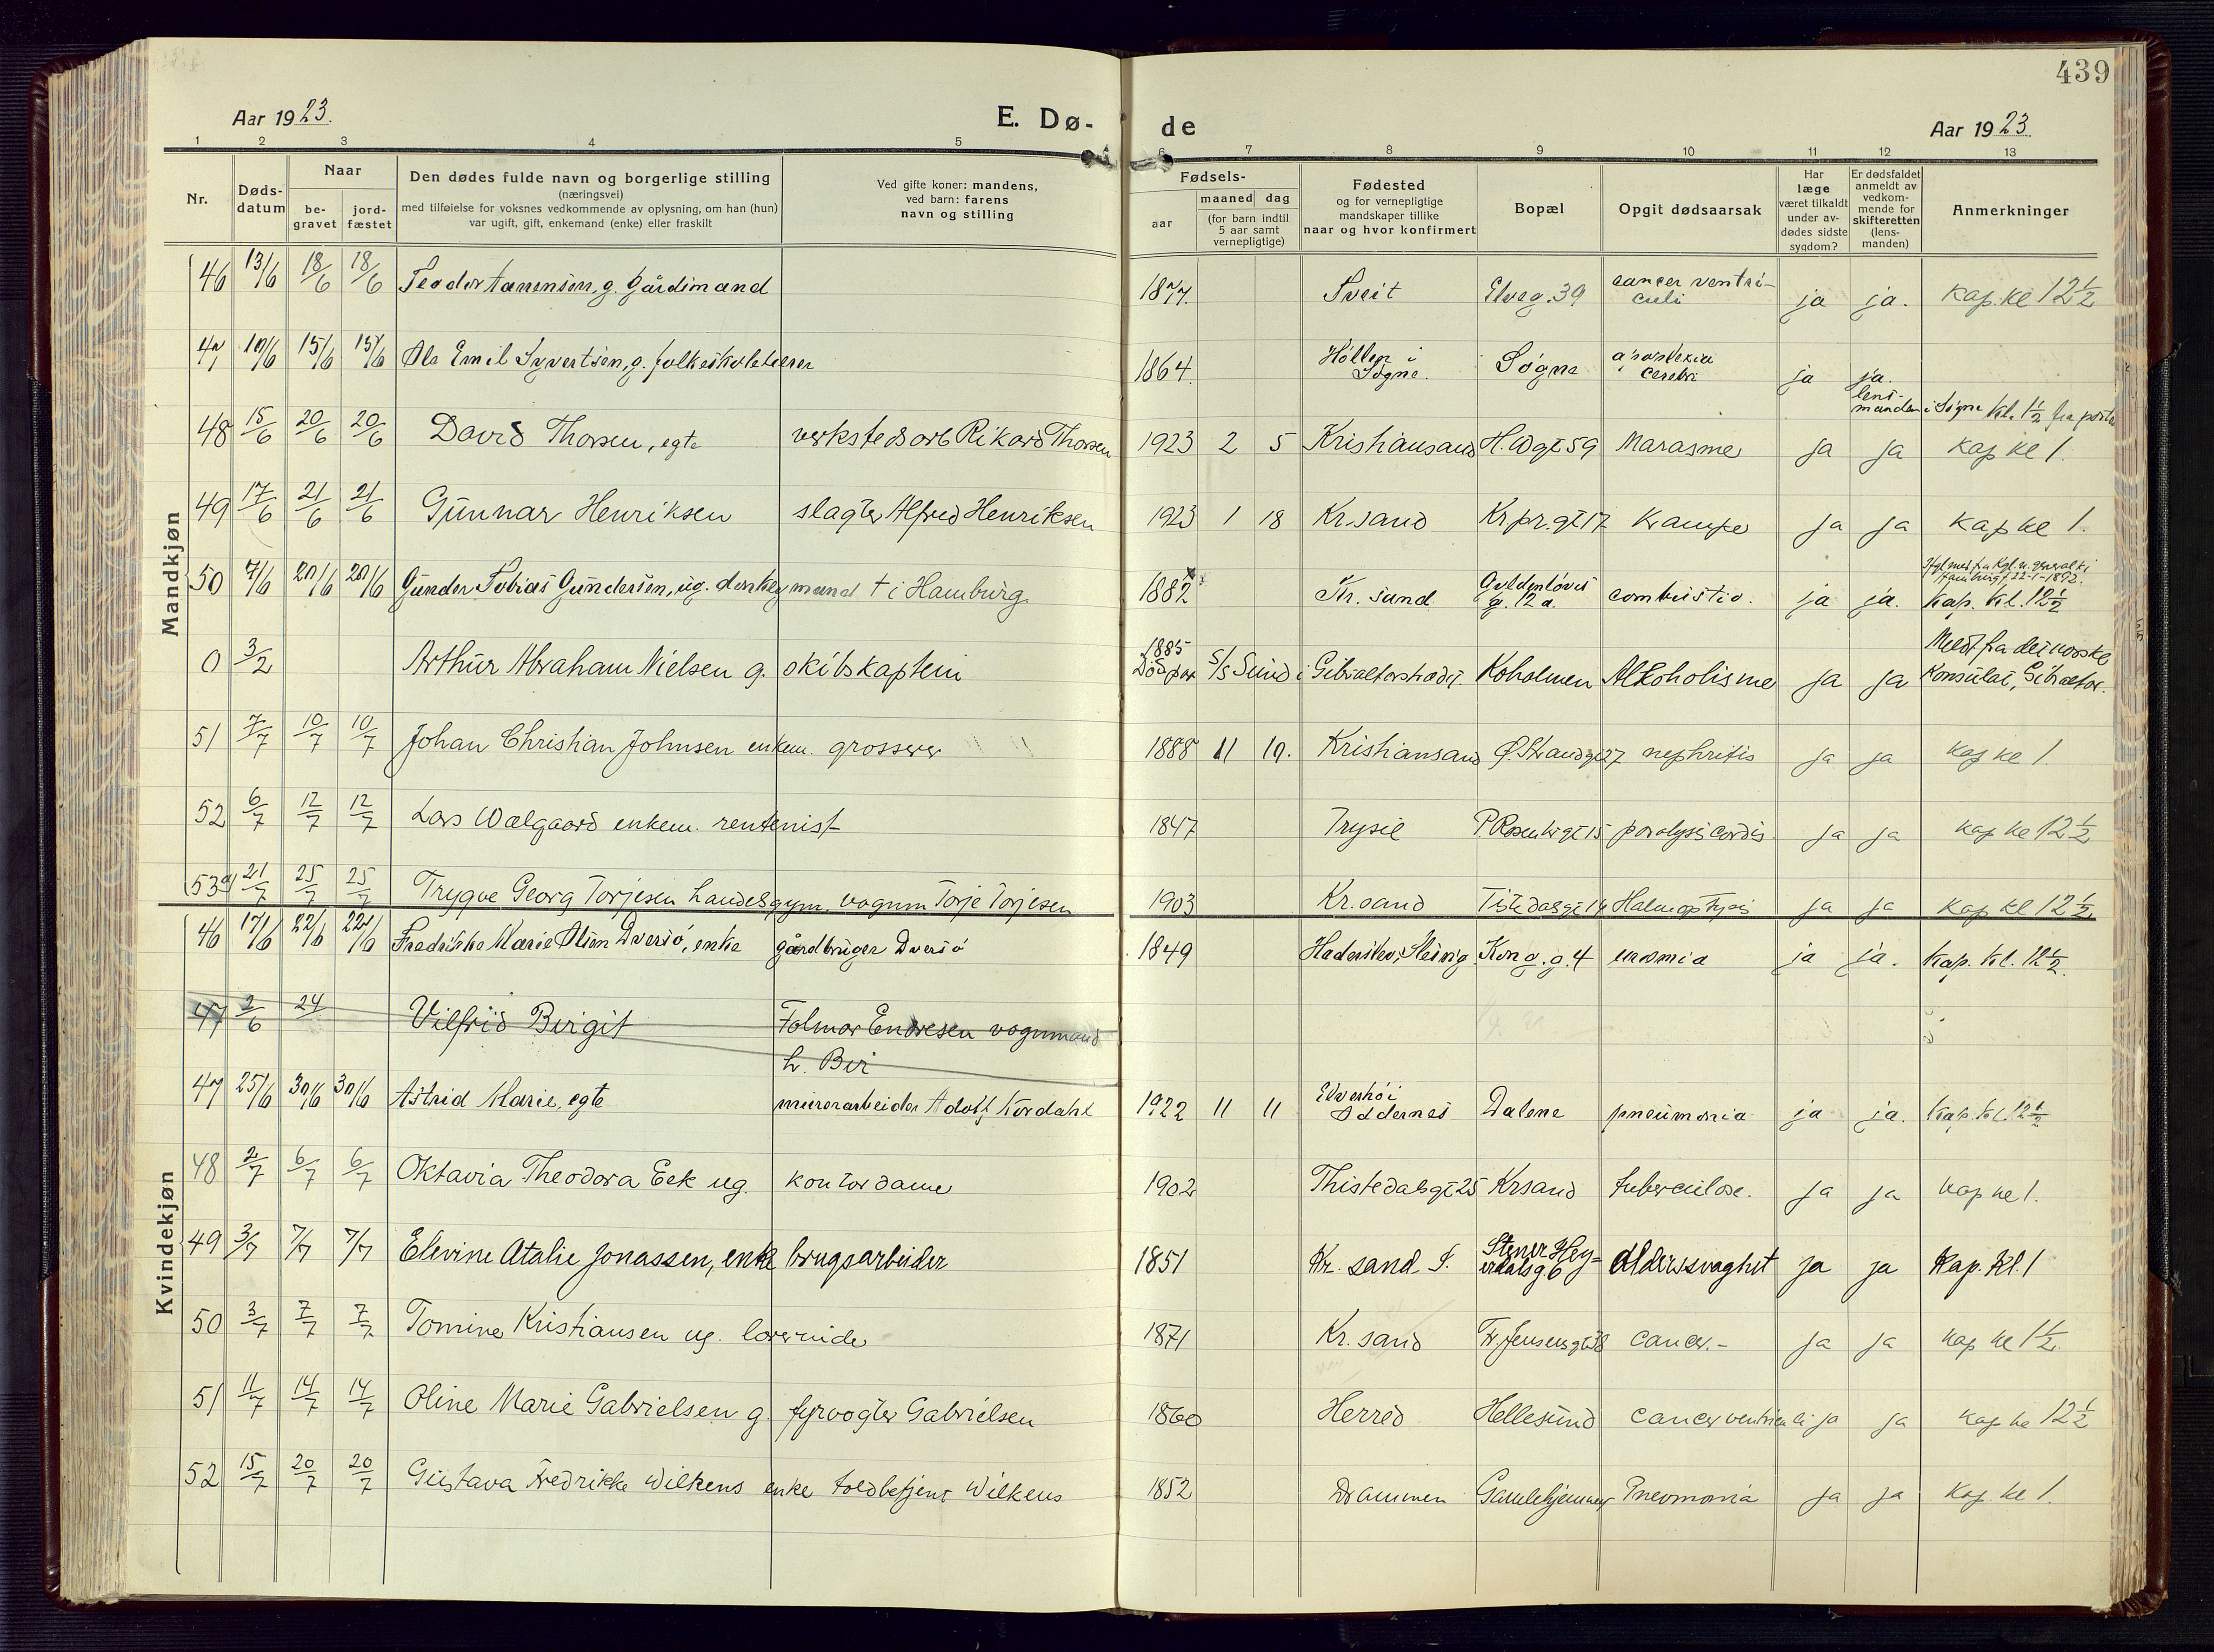 439
Aar 1923.
E. Dø-
de
Aar 1923.
1 2 3 4 5 6 7 8 9 10 11 12 13
Nr.
Døds-
datum
Naar
be-
gravet
jord-
fæstet
Den dødes fulde navn og borgerlige stilling
(næringsvei)
med tilføielse for voksnes vedkommende av oplysning, om han (hun)
var ugift, gift, enkemand (enke) eller fraskilt
Ved gifte koner: mandens,
ved barn: farens
navn og stilling
Fødsels-
aar
maaned dag
(for barn indtil
5 aar samt
vernepligtige)
Fødested
og for vernepligtige
mandskaper tillike
naar og hvor konfirmert
Bopæl
Opgit dødsaarsak
Har
læge
været tilkaldt
under av-
dødes sidste
sygdom?
Er dødsfaldet
anmeldt av
vedkom-
mende for
skifteretten
(lens-
manden)
Anmerkninger
Mandkjøn
46 13/6 18/6 18/6 Teodor Aanensen, g. gårdmand 1877. Tveit Elveg. 39 cancer ventri-
culi ja ja. Kap. kl 12 1/2
47 10/6 15/6 15/6 Ole Emil Syvertsen, g. folkeskolelærer 1864. Høllen i
Søgne. Søgne apoplexia
cerebri ja ja.
lens-
manden i Søgne Kl. 1 1/2 fra
48 15/6 20/6 20/6 David Thorsen, egte verkstedsarb Rikard Thorsen 1923 2 5 Kristiansand H. Wgt 59 Marasme ja ja Kap kl 1.
49 17/6 21/6 21/6 Gunnar Henriksen slagter Alfred Henriksen 1923 1 18 Kr.sand Kr.pr.gt 17 Krampe ja ja Kap kl 1.
50 7/6 20/6 20/6 Gunder Tobias Gundersen, ug. donkeymand † i Hamburg 1882 Kr. sand Gyldenløves
g. 12 a. combustio. ja ja. Kap. Kl. 12 1/2
0 3/2 Arthur Abraham Nielsen g. skibskaptein 1885
Død paa S/S Sund i Gibraltarstrædet Koholmen Alkoholisme ja ja Meldt fra det norske
Konsulat, Gibraltar.
51 7/7 10/7 10/7 Johan Christian Johnsen enkem. grosserer 1888 11 19. Kristiansand Ø. Strandgt 27 nephritis ja ja Kap kl 1.
52 6/7 12/7 12/7 Lars Wælgaard enkem. rentenist 1847 Trysil P. Rosenkr gt 15 paralysis cordis. ja ja Kap kl 12 1/2
53 21/7 25/7 25/7 Trygve Georg Torjesen handelsgym. vognm Torje Torjesen 1903 Kr.sand Tistedalsgt 14 Hæmoptysis ja ja Kap kl 12 1/2
Kvindekjøn
46 17/6 22/6 22/6 Fredrikke Marie Olsen Dversø, enke gårdbruger Dversø 1849 Haderslev, Slesvig. Kong. g. 4 uræmia ja ja. Kap. Kl. 12 1/2.
47 2/6 24 Vilfrid Birgit Folmar Endresen vognmand
h. Bir
47 25/6 30/6 30/6 Astrid Marie, egte minerarbeider Adolf Kordahl 1922 11 11 Oddernes Dalene pneumonia ja ja. Kap. Kl. 12 1/2
48 2/7 6/7 6/7 Oktavia Theodora Eek ug. kontordame 1902 Thistedalsgt 25 Krsand tuberculose. ja ja Kap kl 1.
49 3/7 7/7 7/7 Elevine Atalie Jonassen, enke brugsarbeider 1851 Kr. sand S. Stener Hey-
erdalsg 6 Alderssvaghet ja ja Kap. Kl. 1
50 3/7 7/7 7/7 Tomine Kristiansen ug. lærerinde 1871 Kr.sand Fr. Jensensgt 38 Cancer.- ja ja Kap kl 1 1/2.
51 11/7 14/7 14/7 Oline Marie Gabrielsen g. fyrvogter Gabrielsen 1860 Herred Hellesund cancer ventriculi ja ja Kap kl 12 1/2
52 15/7 20/7 20/7 Gustava Fredrikke Wilkens enke toldbetjent Wilkens 1852 Drammen Gamlehjemmet Pneumonia ja ja Kap. kl 1.